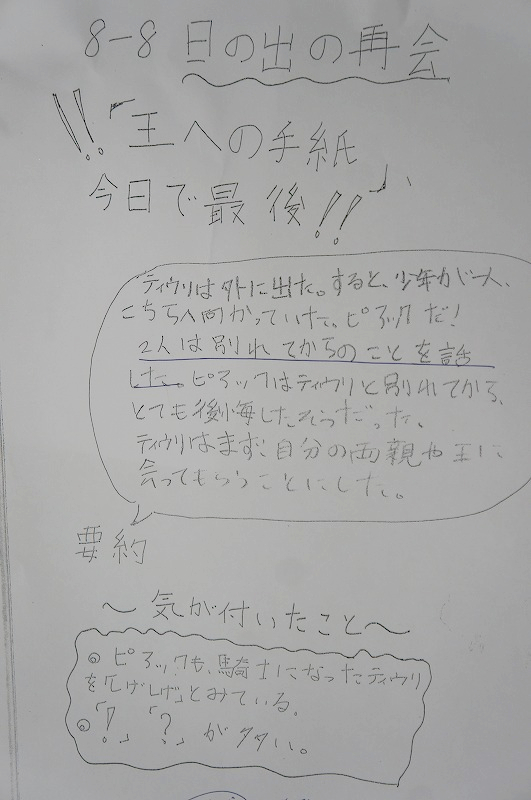 8-8 日の出の再会
!!「王への手紙
今日で最後!!」
ティウリは外に出た。すると、少年が一人、
こちらへ向かっていた。ピアックだ!
2人は別れてからのことを話
した。ピアックはティウリと別れてから、
とても後悔したそうだった。
ティウリはまず自分の両親や王に
会ってもらうことにした。
要約
〜気が付いたこと〜
◎ピアックも、騎士になったティウリ
をとみている。
◎「!」「?」が多い。